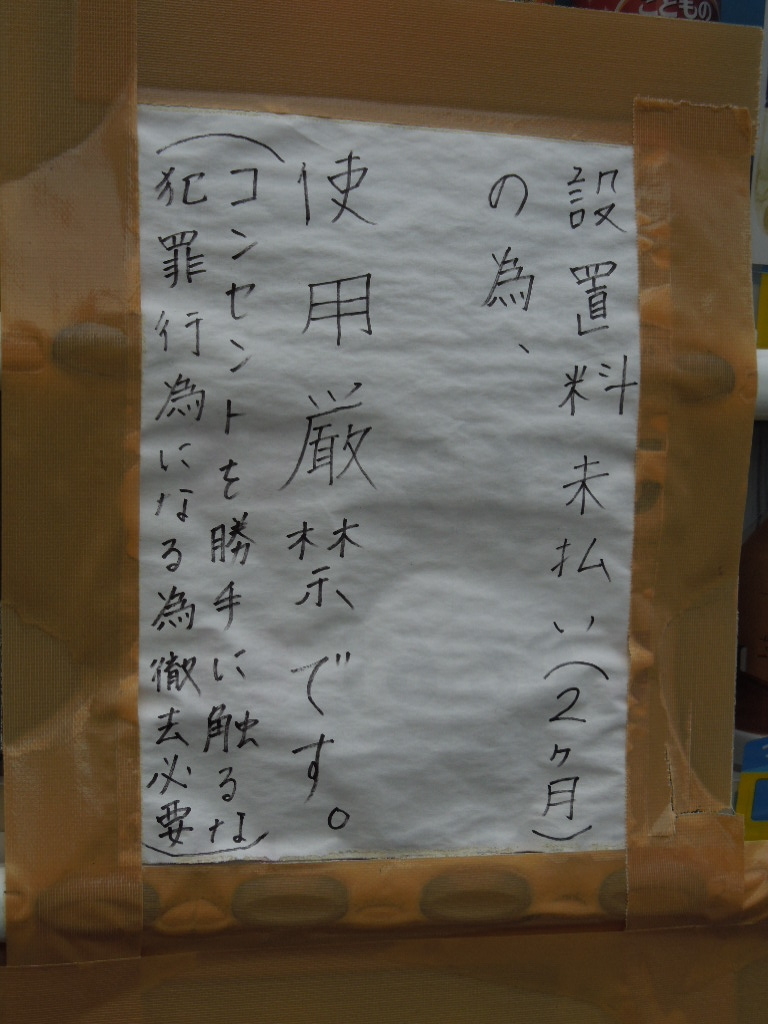 こどもの
設置料未払い(2ヶ月)
の為、
使用厳禁です。
(コンセントを勝手に触るな
犯罪行為になる為徹去必要)